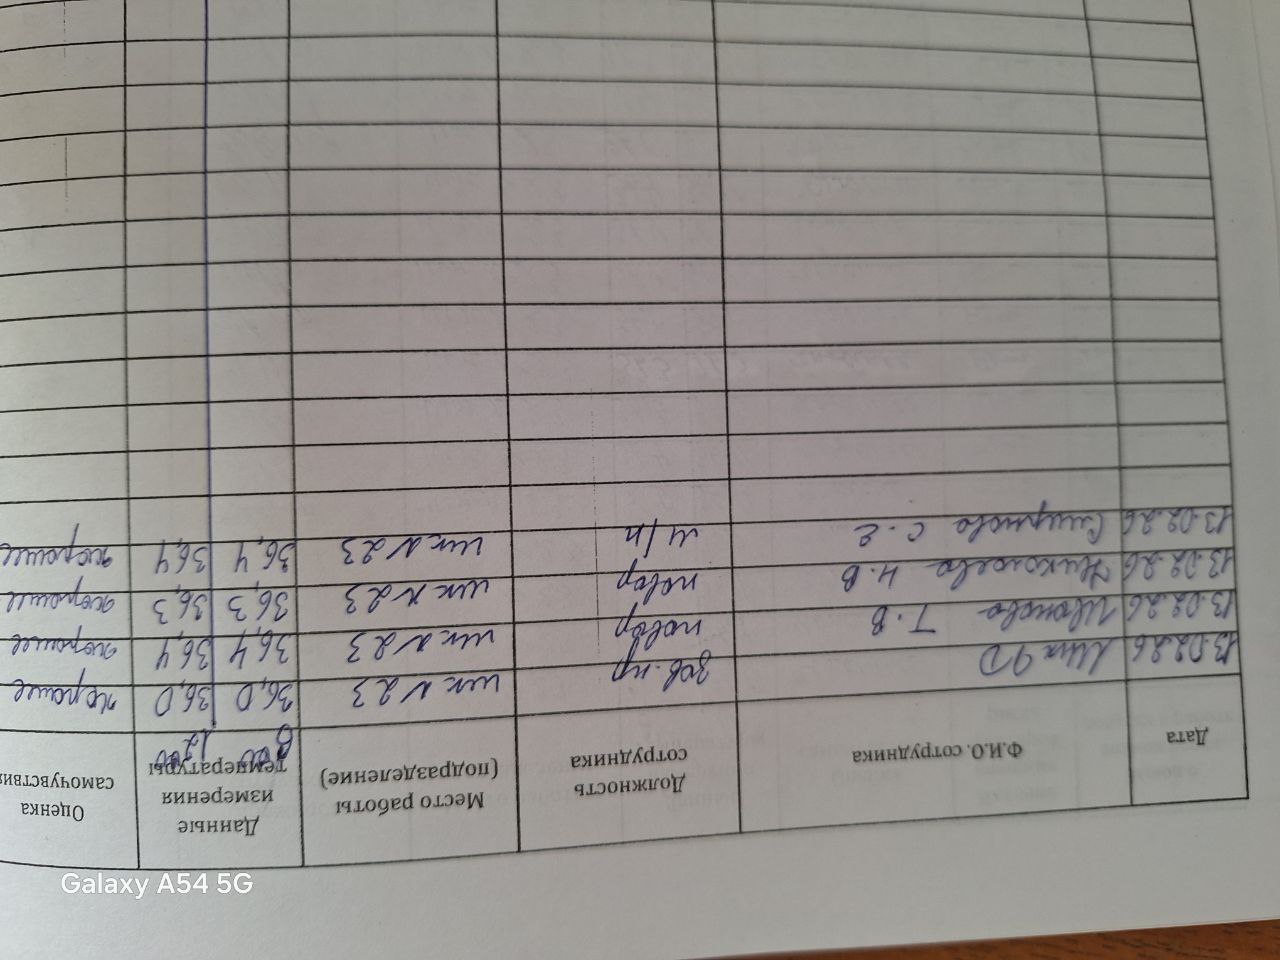 Дата Ф.И.О. сотрудника Должность сотрудника Место работы (подразделение) Данные измерения температуры Оценка самочувствия
8 00 12 00
13.02.26 зав. пр шк N 23 36,0 36,0 хорошее
13.02.26 Иванова Т.В повар шк N 23 36,4 36,4 хорошее
13.02.26 Николаева Н.В повар шк N 23 36,3 36,3 хорошее
13.02.26 Смирнова С.Е м/п шк N 23 36,4 36,4 хорошее
Galaxy A54 5G